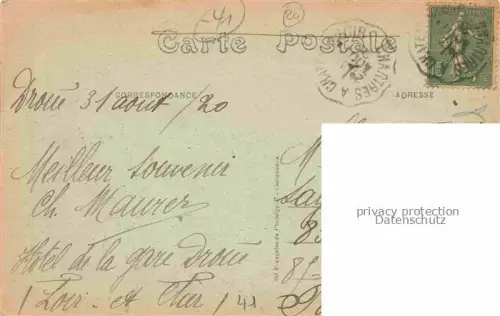 (-41
20
Carte Postale
CORRESPONDANCE
ADRESSE
Droué 31 août /20
Meilleur souvenir
Ch. Maurer
Hôtel de la gare Droué
(Loir et Cher) 41
M
privacy protection
Datenschutz
CHARTRES A